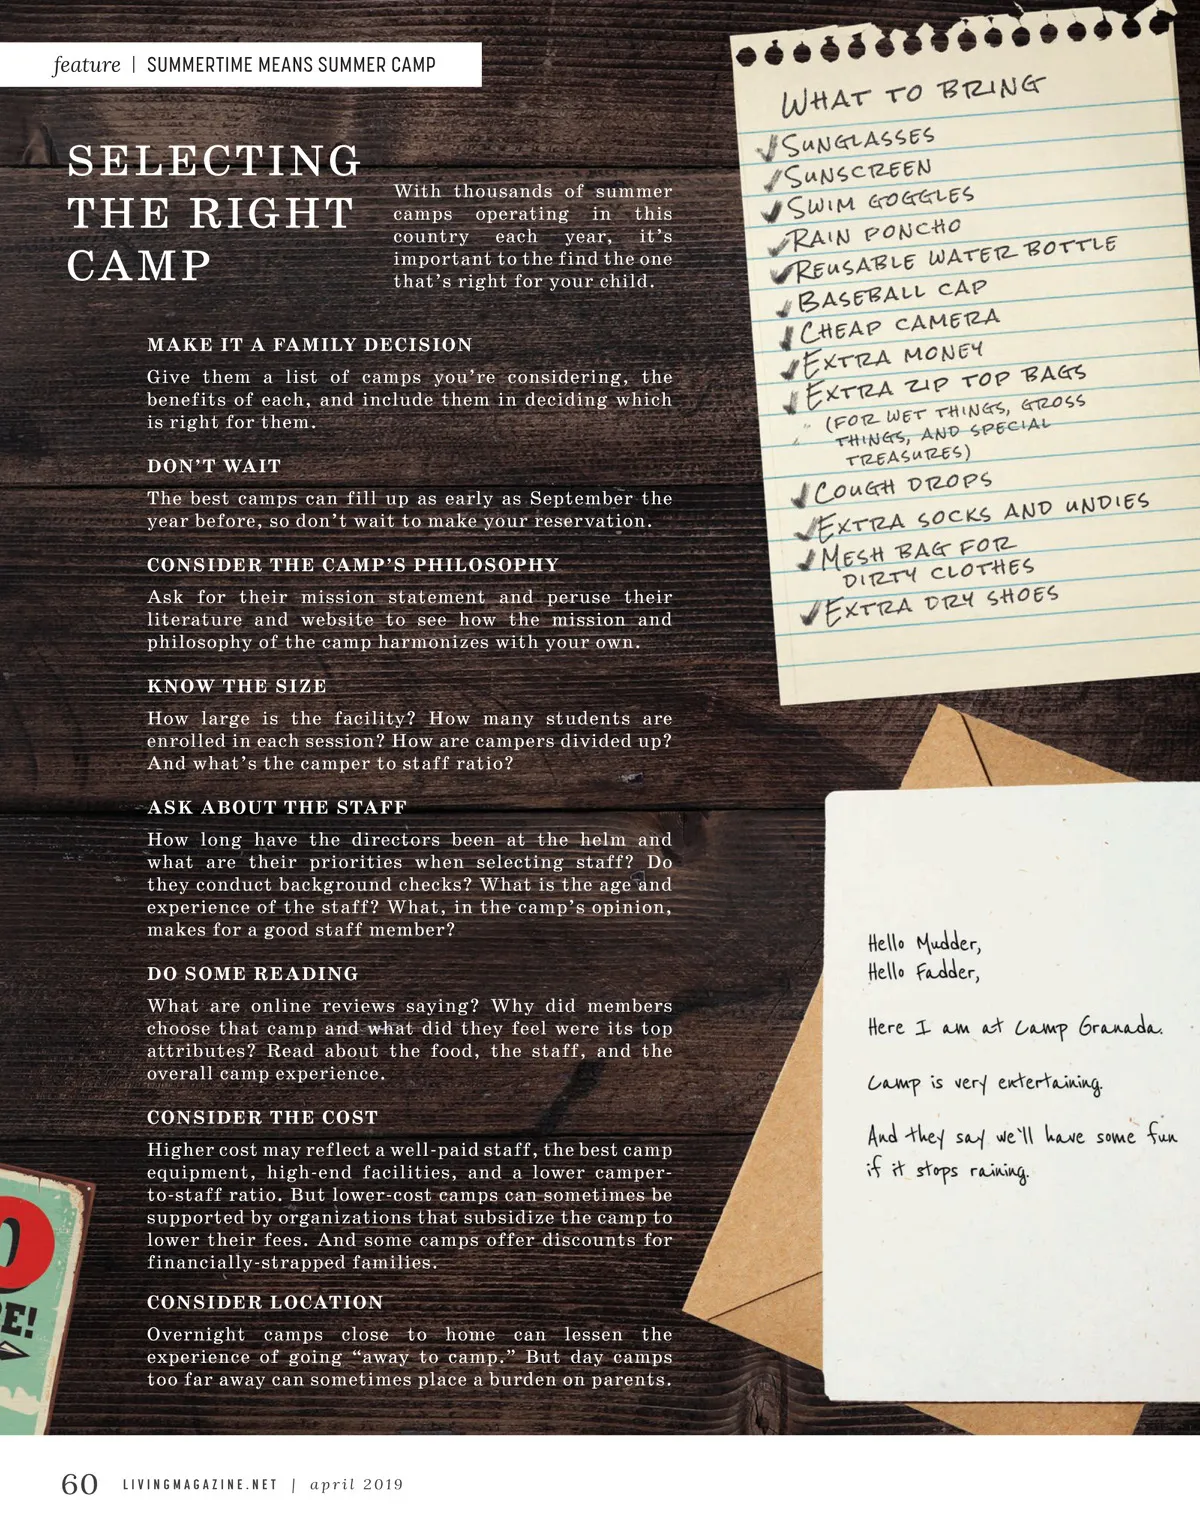 feature | SUMMERTIME MEANS SUMMER CAMP
SELECTING
THE RIGHT
CAMP
With thousands of summer
camps operating in this
country each year, it’s
important to the find the one
that’s right for your child.
MAKE IT A FAMILY DECISION
Give them a list of camps you’re considering, the
benefits of each, and include them in deciding which
is right for them.
DON’T WAIT
The best camps can fill up as early as September the
year before, so don’t wait to make your reservation.
CONSIDER THE CAMP’S PHILOSOPHY
Ask for their mission statement and peruse their
literature and website to see how the mission and
philosophy of the camp harmonizes with your own.
KNOW THE SIZE
How large is the facility? How many students are
enrolled in each session? How are campers divided up?
And what’s the camper to staff ratio?
ASK ABOUT THE STAFF
How long have the directors been at the helm and
what are their priorities when selecting staff? Do
they conduct background checks? What is the age and
experience of the staff? What, in the camp’s opinion,
makes for a good staff member?
DO SOME READING
What are online reviews saying? Why did members
choose that camp and what did they feel were its top
attributes? Read about the food, the staff, and the
overall camp experience.
CONSIDER THE COST
Higher cost may reflect a well-paid staff, the best camp
equipment, high-end facilities, and a lower camper-
to-staff ratio. But lower-cost camps can sometimes be
supported by organizations that subsidize the camp to
lower their fees. And some camps offer discounts for
financially-strapped families.
CONSIDER LOCATION
Overnight camps close to home can lessen the
experience of going “away to camp.” But day camps
too far away can sometimes place a burden on parents.
WHAT TO BRING
SUNGLASSES
SUNSCREEN
SWIM GOGGLES
RAIN PONCHO
REUSABLE WATER BOTTLE
BASEBALL CAP
CHEAP CAMERA
EXTRA MONEY
EXTRA ZIP TOP BAGS
(FOR WET THINGS, GROSS
THINGS, AND SPECIAL
TREASURES)
COUGH DROPS
EXTRA SOCKS AND UNDIES
MESH BAG FOR
DIRTY CLOTHES
EXTRA DRY SHOES
Hello Mudder,
Hello Fadder,
Here I am at Camp Granada.
Camp is very entertaining.
And they say we'll have some fun
if it stops raining.
E!
60 LIVINGMAGAZINE.NET | april 2019